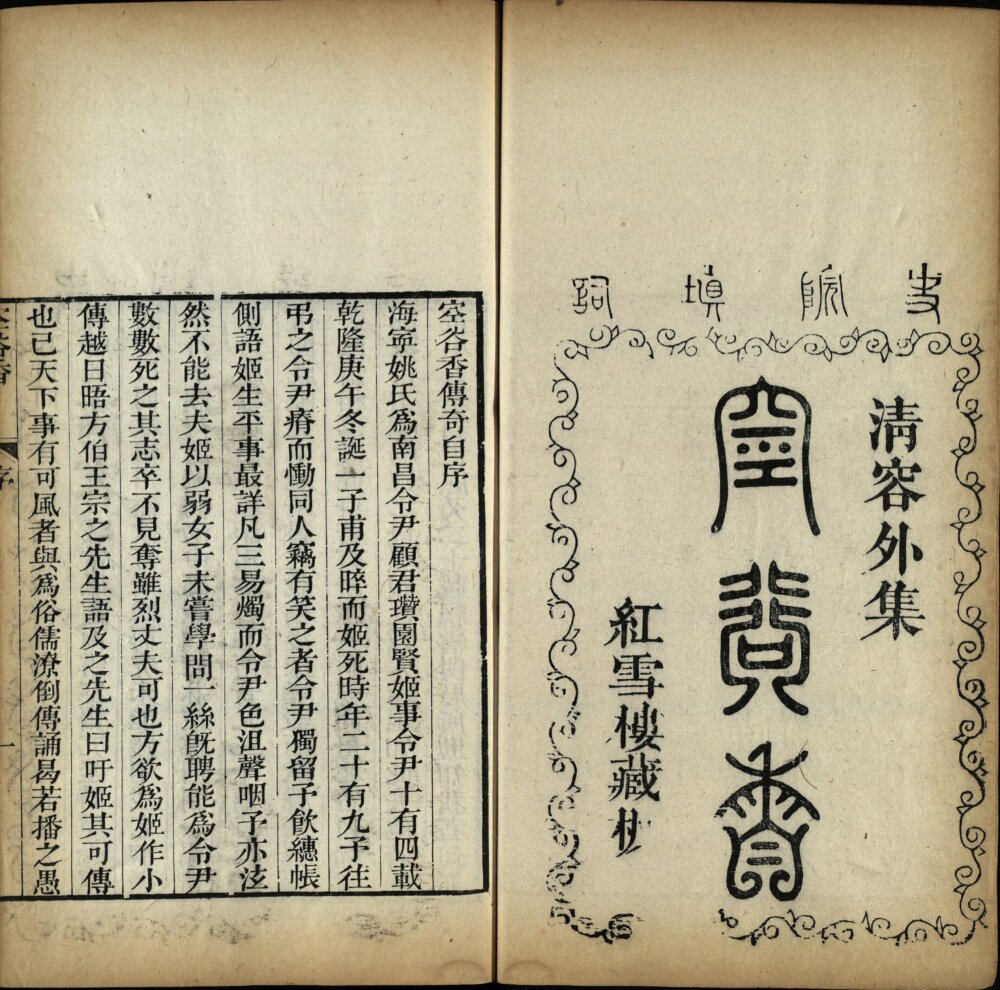 史院填詞
清容外集
空谷香
紅雪樓藏板
空谷香傳奇自序
海寧姚氏爲南昌令尹顧君瓚園賢姬事令尹十有四載
乾隆庚午冬誕一子甫及晬而姬死時年二十有九予往
弔之令尹瘠而慟同人竊有笑之者令尹獨留予飲繐帳
側語姬生平事最詳凡三易燭而令尹色沮聲咽予亦泫
然不能去夫姬以弱女子未嘗學問一絲旣聘能爲令尹
數數死之其志卒不見奪雖烈丈夫可也方欲爲姬作小
傳越日晤方伯王宗之先生語及之先生曰吁姬其可傳
也已天下事有可風者與爲俗儒潦倒傳誦曷若播之愚
空谷香 序 一